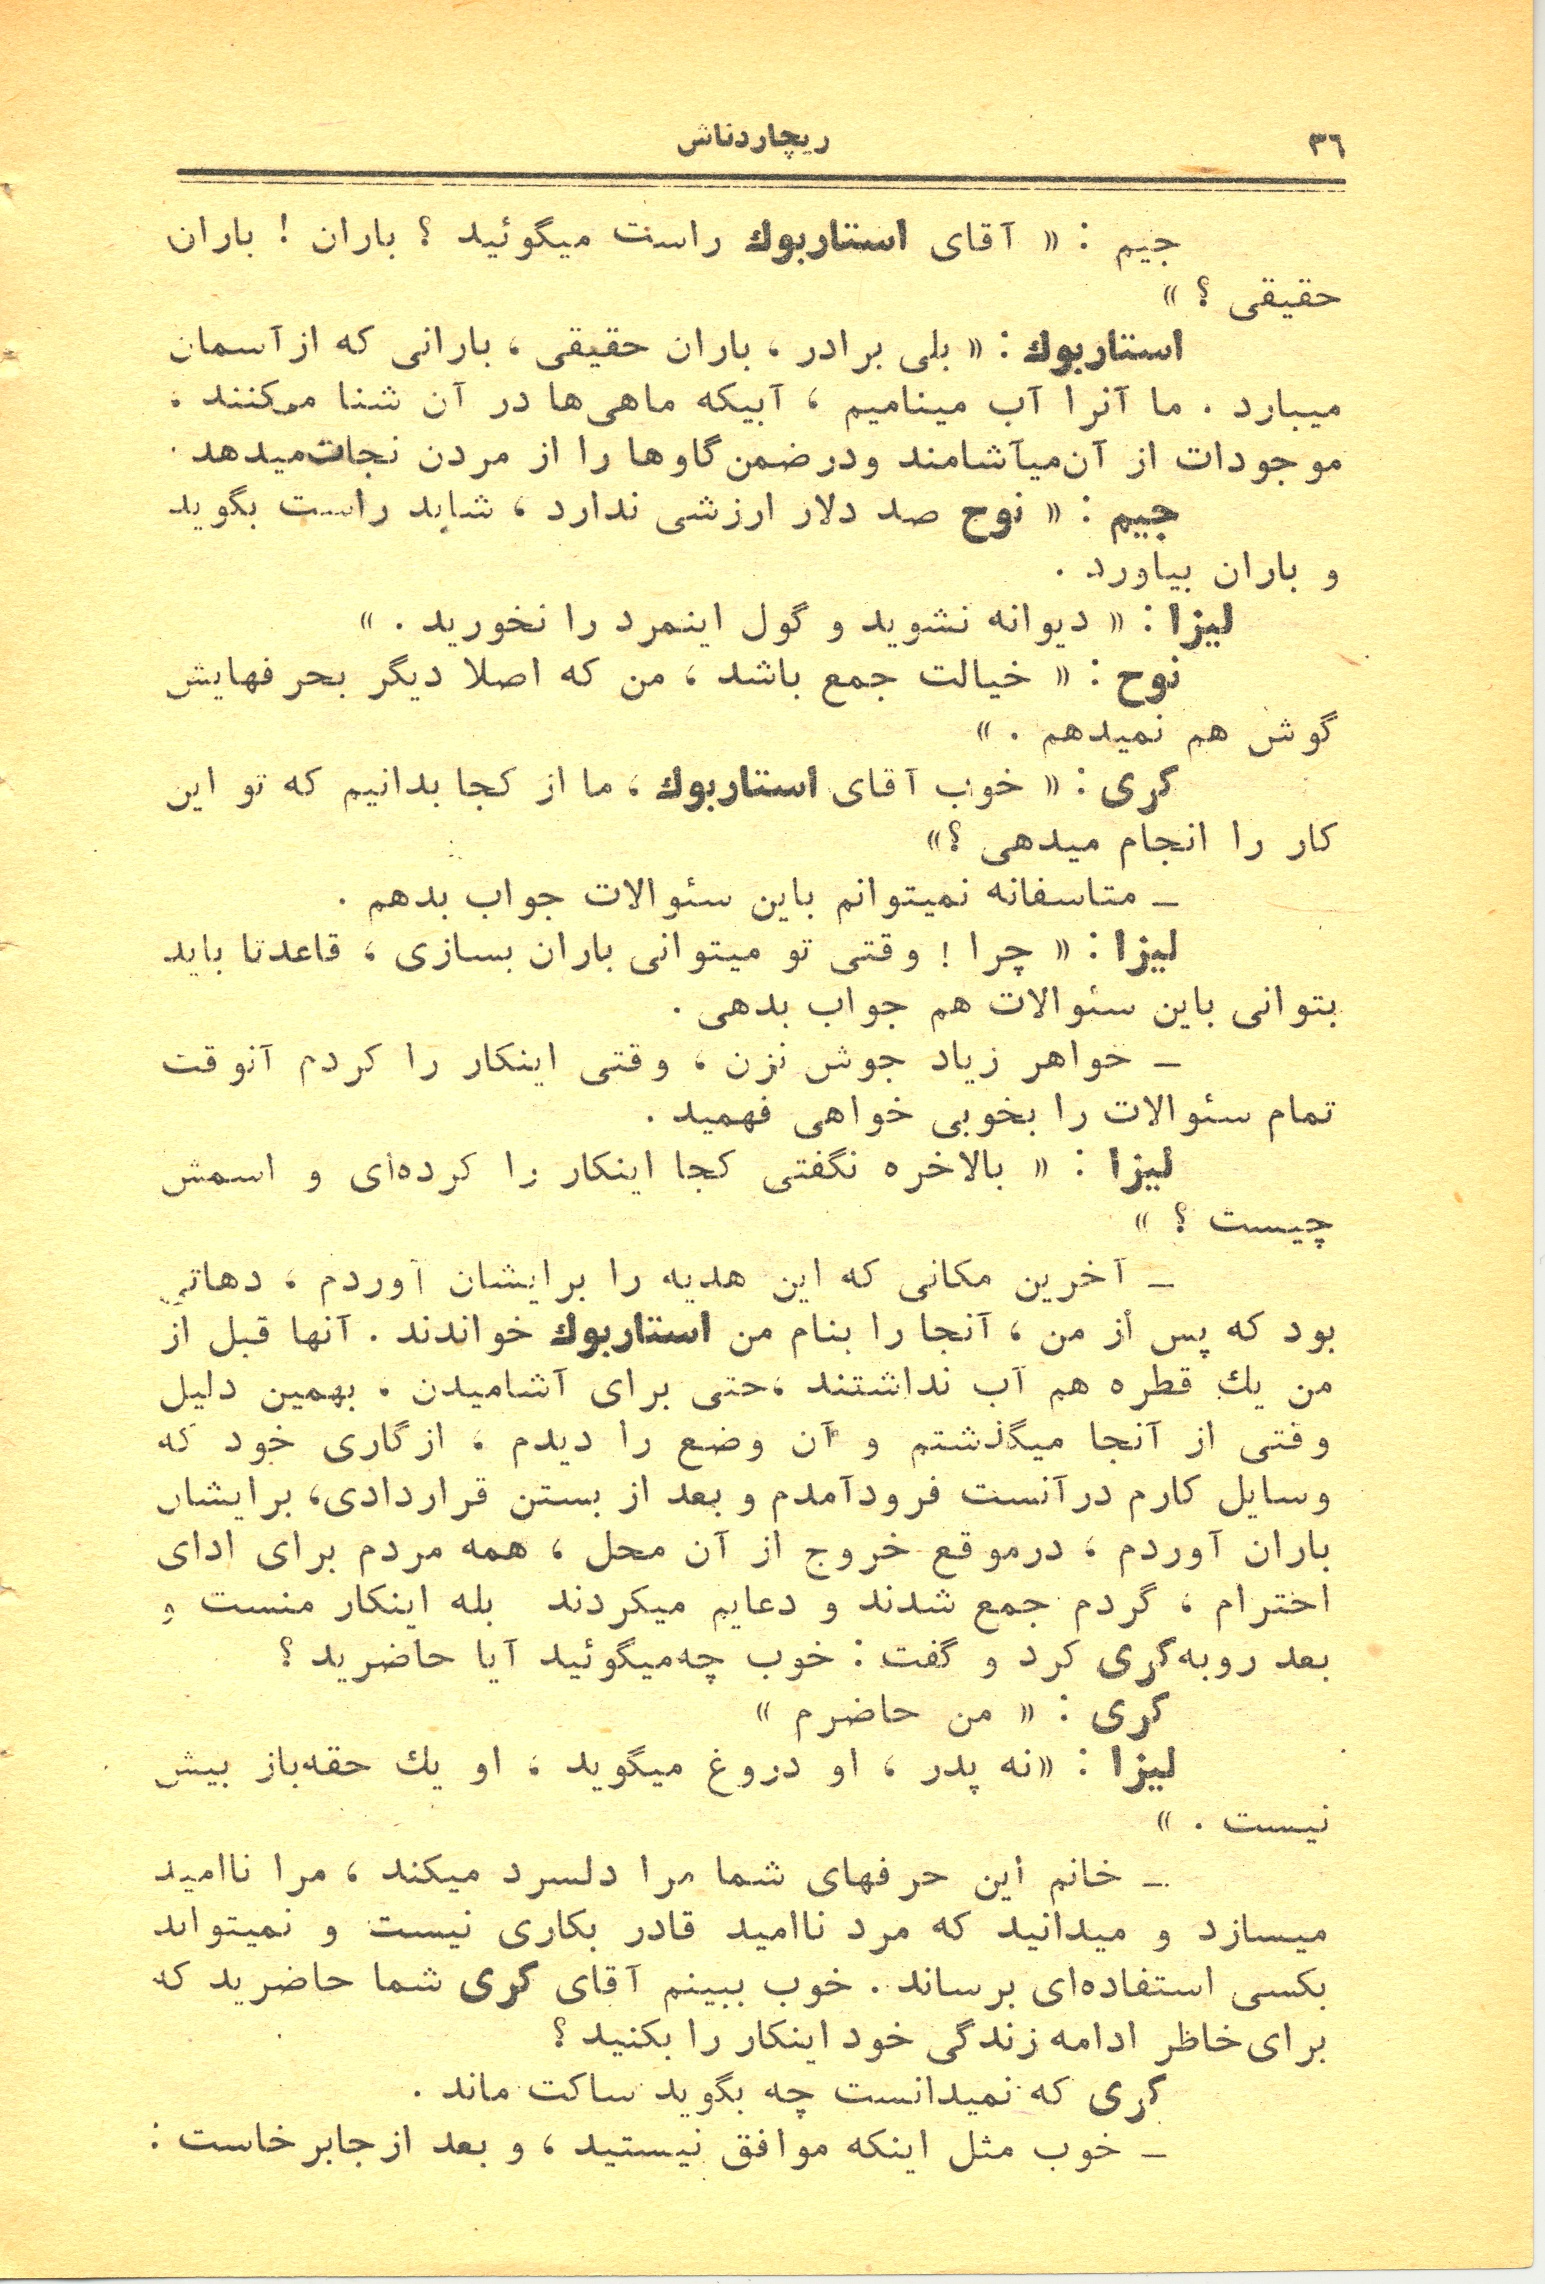 ۳۶
ریچاردناش
جیم : « آقای استاربوك راست میگوئید ؟ باران ! باران
حقیقی ؟ »
استاربوك : « بلی برادر ، باران حقیقی ، بارانی که از آسمان
میبارد . ما آنرا آب مینامیم ، آبیکه ماهی‌ها در آن شنا میکنند ،
موجودات از آن‌میآشامند ودرضمن گاوها را از مردن نجات‌میدهد .
جیم : « نوح صد دلار ارزشی ندارد ، شاید راست بگوید
و باران بیاورد .
لیزا : « دیوانه نشوید و گول اینمرد را نخورید . »
نوح : « خیالت جمع باشد ، من که اصلا دیگر بحرفهایش
گوش هم نمیدهم . »
کری : « خوب آقای استاربوك ، ما از کجا بدانیم که تو این
کار را انجام میدهی ؟»
ـ متاسفانه نمیتوانم باین سئوالات جواب بدهم .
لیزا : « چرا ! وقتی تو میتوانی باران بسازی ، قاعدتا باید
بتوانی باین سئوالات هم جواب بدهی .
ـ خواهر زیاد جوش نزن ، وقتی اینکار را کردم آنوقت
تمام سئوالات را بخوبی خواهی فهمید .
لیزا : « بالاخره نگفتی کجا اینکار را کرده‌ای و اسمش
چیست ؟ »
ـ آخرین مکانی که این هدیه را برایشان آوردم ، دهاتی
بود که پس از من ، آنجا را بنام من استاربوك خواندند . آنها قبل از
من یك قطره هم آب نداشتند ،حتی برای آشامیدن . بهمین دلیل
وقتی از آنجا میگذشتم و آن وضع را دیدم ، ازگاری خود که
وسایل کارم درآنست فرودآمدم و بعد از بستن قراردادی، برایشان
باران آوردم ، درموقع خروج از آن محل ، همه مردم برای ادای
احترام ، گردم جمع شدند و دعایم میکردند بله اینکار منست و
بعد روبه‌کری کرد و گفت : خوب چه‌میگوئید آیا حاضرید ؟
کری : « من حاضرم »
لیزا : «نه پدر ، او دروغ میگوید ، او یك حقه‌باز بیش
نیست . »
ـ خانم این حرفهای شما مرا دلسرد میکند ، مرا ناامید
میسازد و میدانید که مرد ناامید قادر بکاری نیست و نمیتواند
بکسی استفاده‌ای برساند . خوب ببینم آقای کری شما حاضرید که
برای‌خاظر ادامه زندگی خود اینکار را بکنید ؟
کری که نمیدانست چه بگوید ساکت ماند .
ـ خوب مثل اینکه موافق نیستید ، و بعد ازجابرخاست :